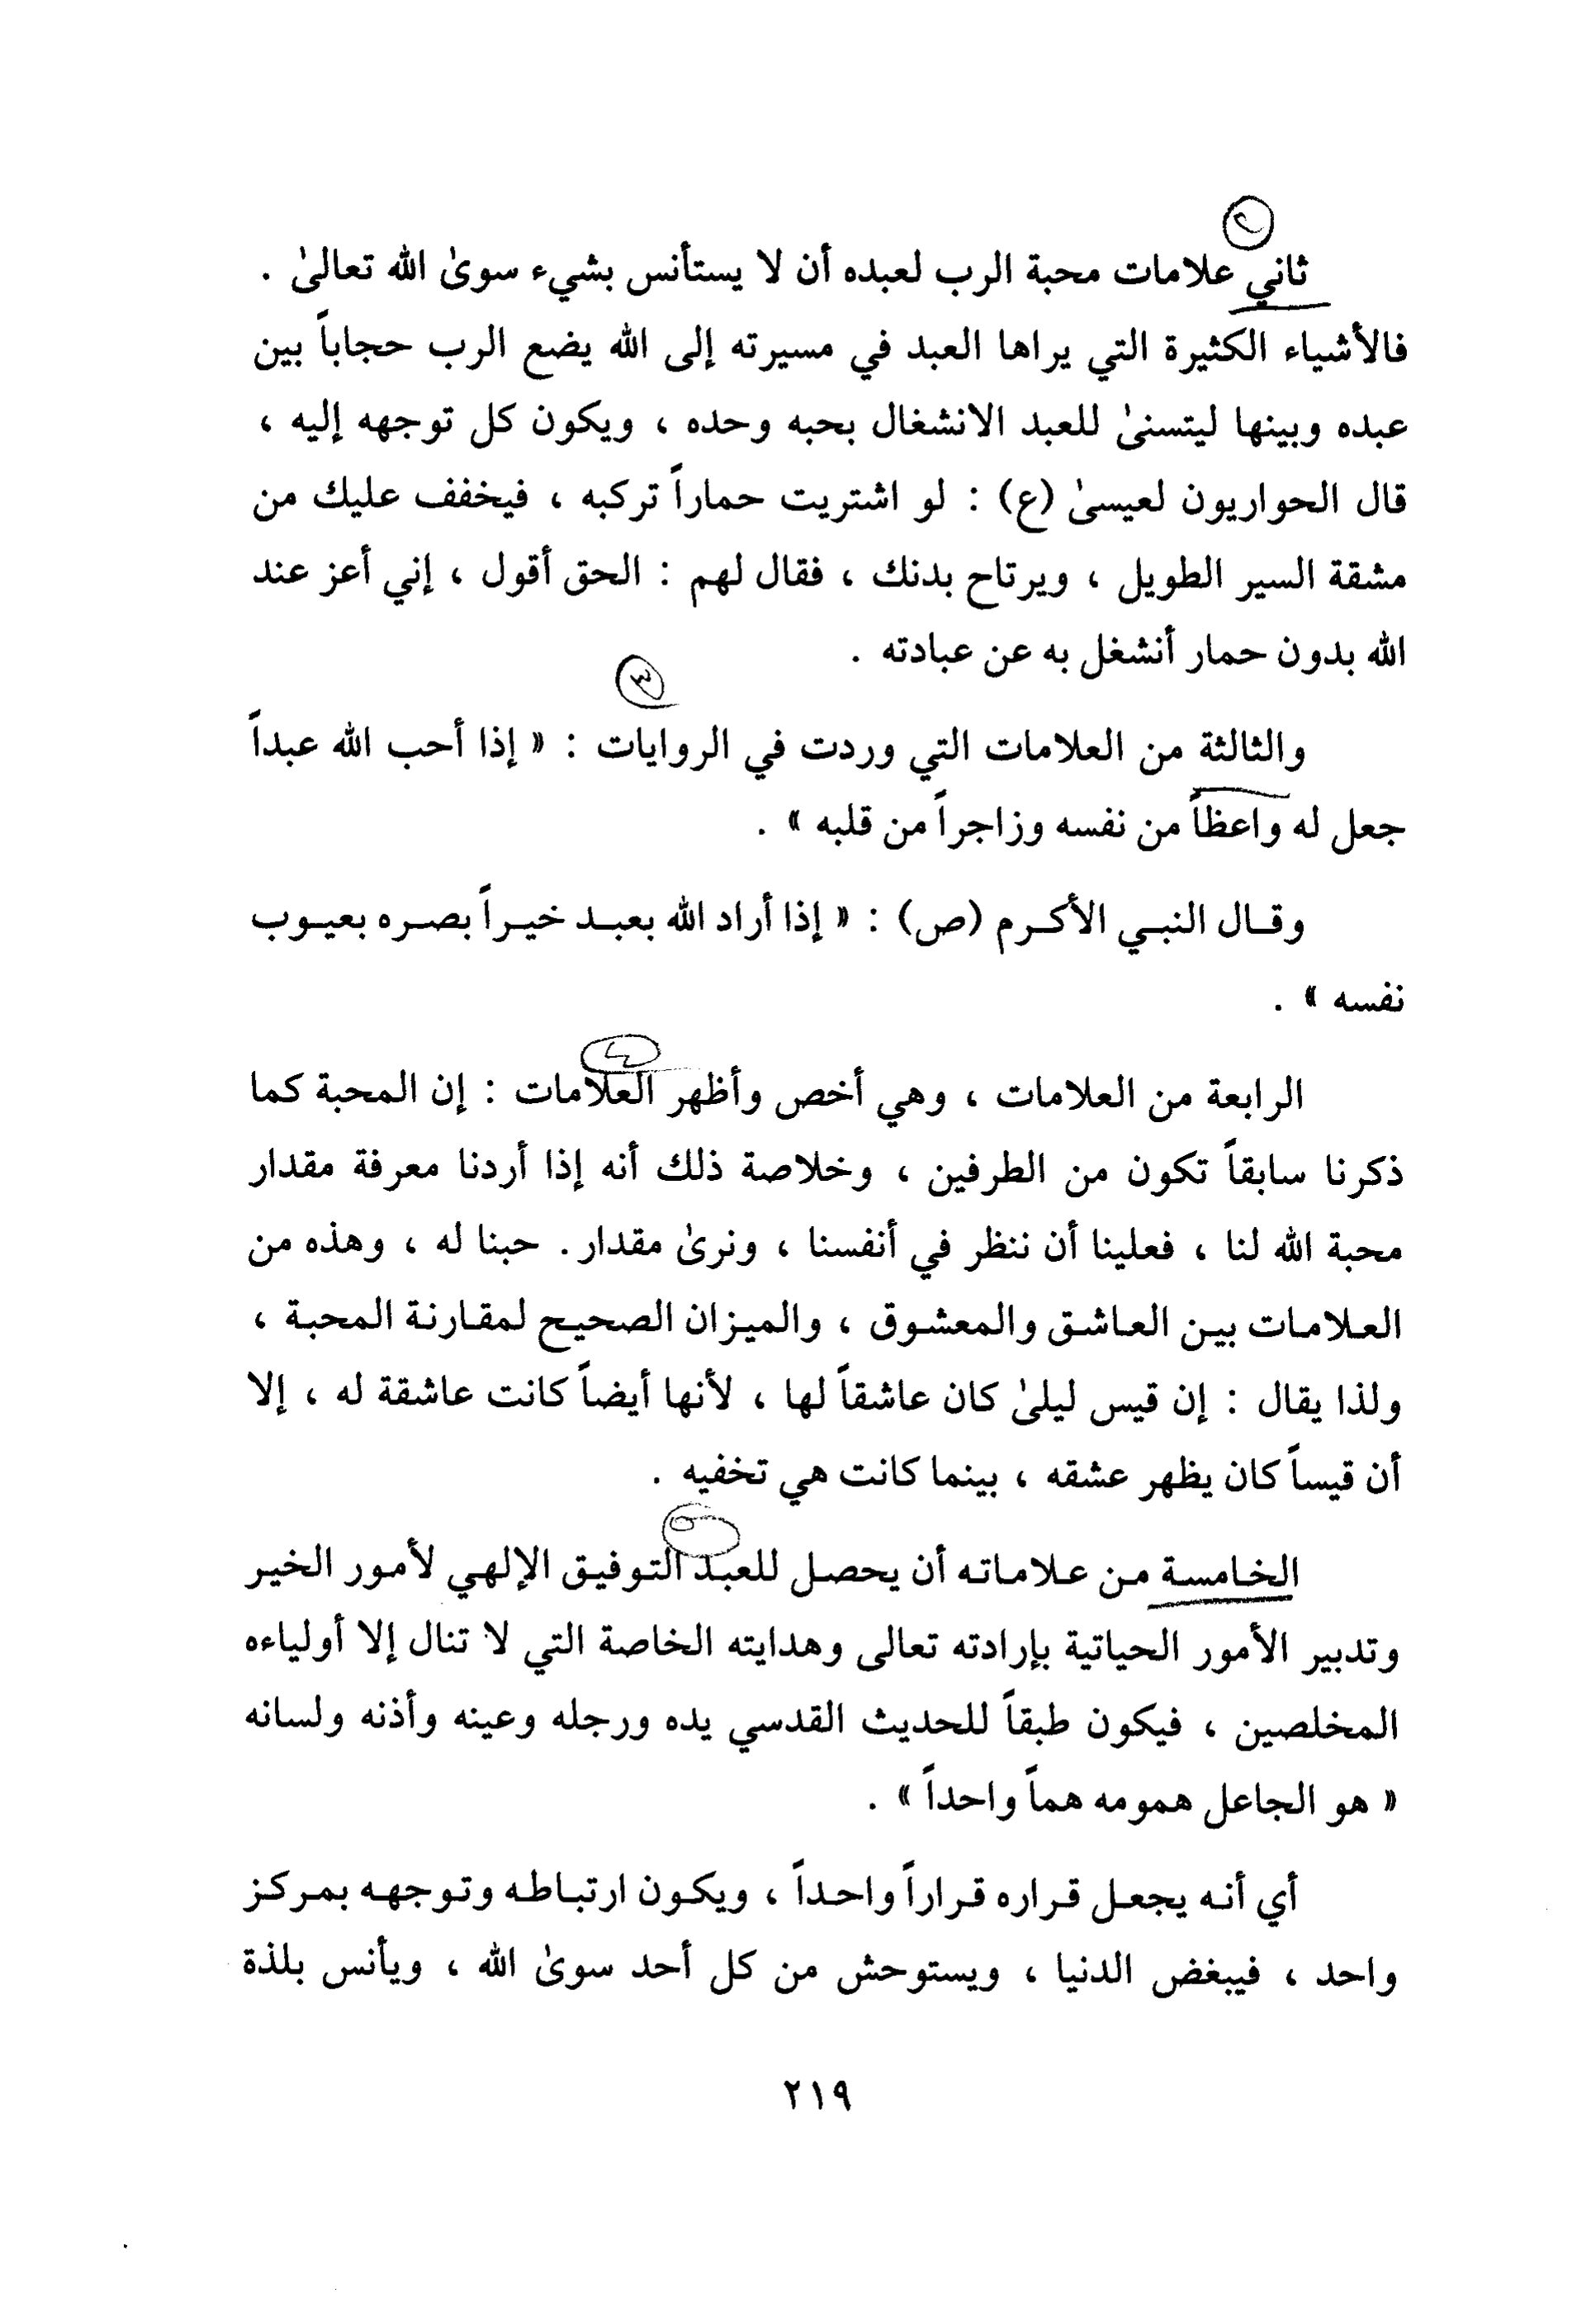 ٢
ثاني علامات محبة الرب لعبده أن لا يستأنس بشيء سوىٰ الله تعالىٰ .
فالأشياء الكثيرة التي يراها العبد في مسيرته إلى الله يضع الرب حجاباً بين
عبده وبينها ليتسنىٰ للعبد الانشغال بحبه وحده ، ويكون كل توجهه إليه ،
قال الحواريون لعيسىٰ (ع) : لو اشتريت حماراً تركبه ، فيخفف عليك من
مشقة السير الطويل ، ويرتاح بدنك ، فقال لهم : الحق أقول ، إني أعز عند
الله بدون حمار أنشغل به عن عبادته .
٣
والثالثة من العلامات التي وردت في الروايات : « إذا أحب الله عبداً
جعل له واعظاً من نفسه وزاجراً من قلبه » .
وقال النبي الأكرم (ص) : « إذا أراد الله بعبد خيراً بصره بعيوب
نفسه » .
٤
الرابعة من العلامات ، وهي أخص وأظهر العلامات : إن المحبة كما
ذكرنا سابقاً تكون من الطرفين ، وخلاصة ذلك أنه إذا أردنا معرفة مقدار
محبة الله لنا ، فعلينا أن ننظر في أنفسنا ، ونرىٰ مقدار . حبنا له ، وهذه من
العلامات بين العاشق والمعشوق ، والميزان الصحيح لمقارنة المحبة ،
ولذا يقال : إن قيس ليلىٰ كان عاشقاً لها ، لأنها أيضاً كانت عاشقة له ، إلا
أن قيساً كان يظهر عشقه ، بينما كانت هي تخفيه .
٥
الخامسة من علاماته أن يحصل للعبد التوفيق الإلهي لأمور الخير
وتدبير الأمور الحياتية بإرادته تعالى وهدايته الخاصة التي لا تنال إلا أولياءه
المخلصين ، فيكون طبقاً للحديث القدسي يده ورجله وعينه وأذنه ولسانه
« هو الجاعل همومه هماً واحداً » .
أي أنه يجعل قراره قراراً واحداً ، ويكون ارتباطه وتوجهه بمركز
واحد ، فيبغض الدنيا ، ويستوحش من كل أحد سوىٰ الله ، ويأنس بلذة
٢١٩